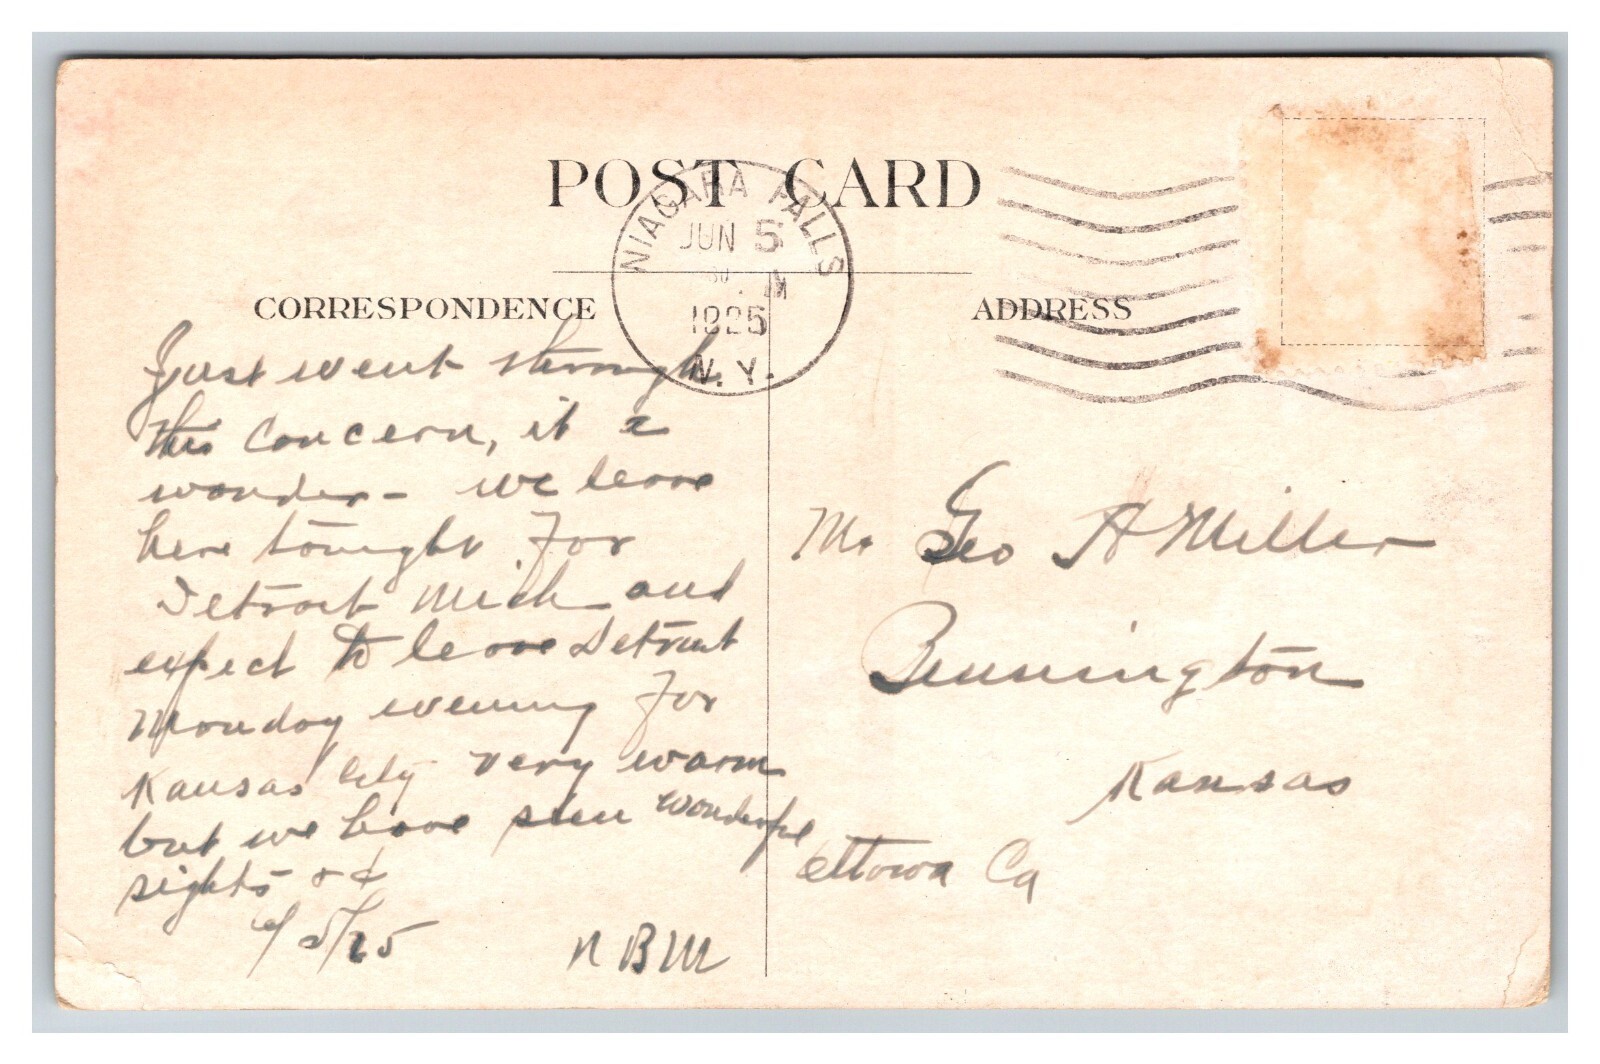 POST CARD
NIAGARA FALLS
JUN 5
30 M
1925
N.Y.
CORRESPONDENCE
ADDRESS
Just went through
this concern, it a
wonder - we leave
here tonight For
Detroit Mich and
expect to leave Detroit
Monday evening For
Kansas City very warm
but we have seen wonderful
sights
6/5/25
NBM
Mr Geo H Miller
Bennington
Kansas
Ottowa Co